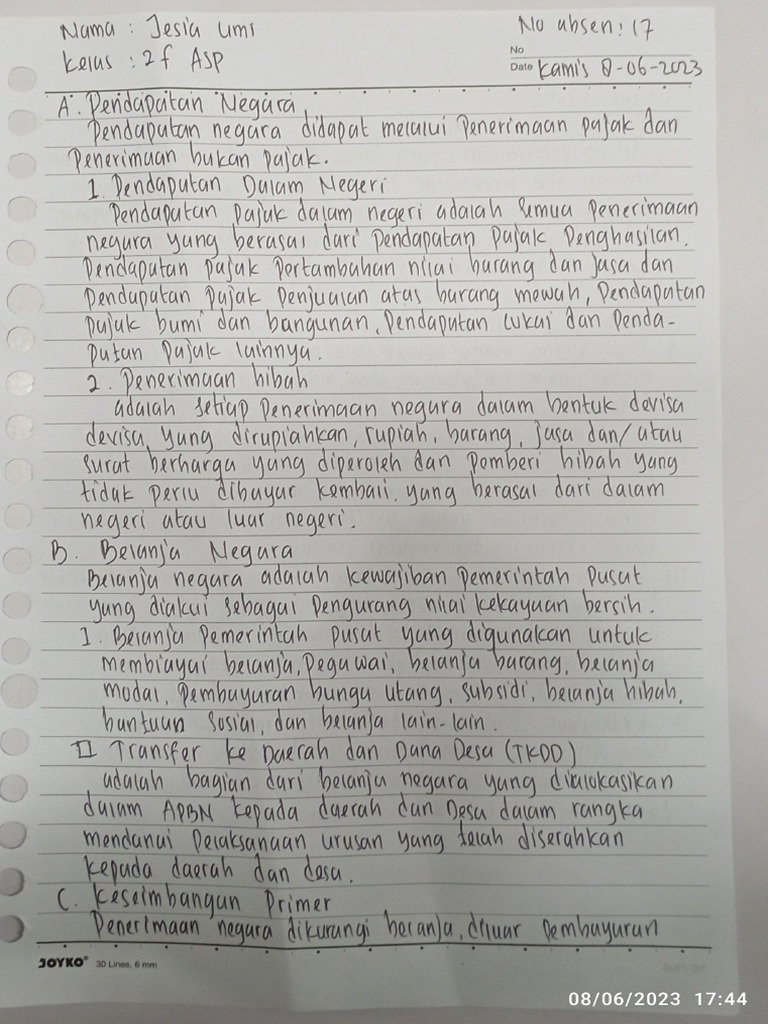 Nama : Jesia Umi
No absen : 17
Kelas : 2f ASP
No
Date Kamis 8-06-2023
A. Pendapatan Negara
Pendapatan negara didapat melalui Penerimaan pajak dan
Penerimaan bukan pajak.
1. Pendapatan Dalam Negeri
Pendapatan pajak dalam negeri adalah semua penerimaan
negara yang berasal dari Pendapatan Pajak Penghasilan,
Pendapatan pajak Pertambahan nilai barang dan jasa dan
Pendapatan Pajak Penjualan atas barang mewah, Pendapatan
Pajak bumi dan bangunan, Pendapatan cukai dan Penda-
patan Pajak lainnya.
2. Penerimaan hibah
adalah setiap Penerimaan negara dalam bentuk devisa
devisa, yang dirupiahkan, rupiah, barang, jasa dan/atau
surat berharga yang diperoleh dan Pemberi hibah yang
tidak perlu dibayar kembali, yang berasal dari dalam
negeri atau luar negeri.
B. Belanja Negara
Belanja negara adalah kewajiban Pemerintah Pusat
yang diakui sebagai Pengurang nilai kekayaan bersih.
I. Belanja Pemerintah pusat yang digunakan untuk
membiayai belanja, Pegawai, belanja barang, belanja
modal, Pembayaran bunga utang, subsidi, belanja hibah,
bantuan sosial, dan belanja lain-lain.
II Transfer ke Daerah dan Dana Desa (TKDD)
adalah bagian dari belanja negara yang dialokasikan
dalam APBN kepada daerah dan Desa dalam rangka
mendanai Pelaksanaan urusan yang telah diserahkan
kepada daerah dan desa.
C. Keseimbangan Primer
Penerimaan negara dikurangi belanja, diluar Pembayaran
JOYKO® 30 Lines, 6 mm
08/06/2023 17:44